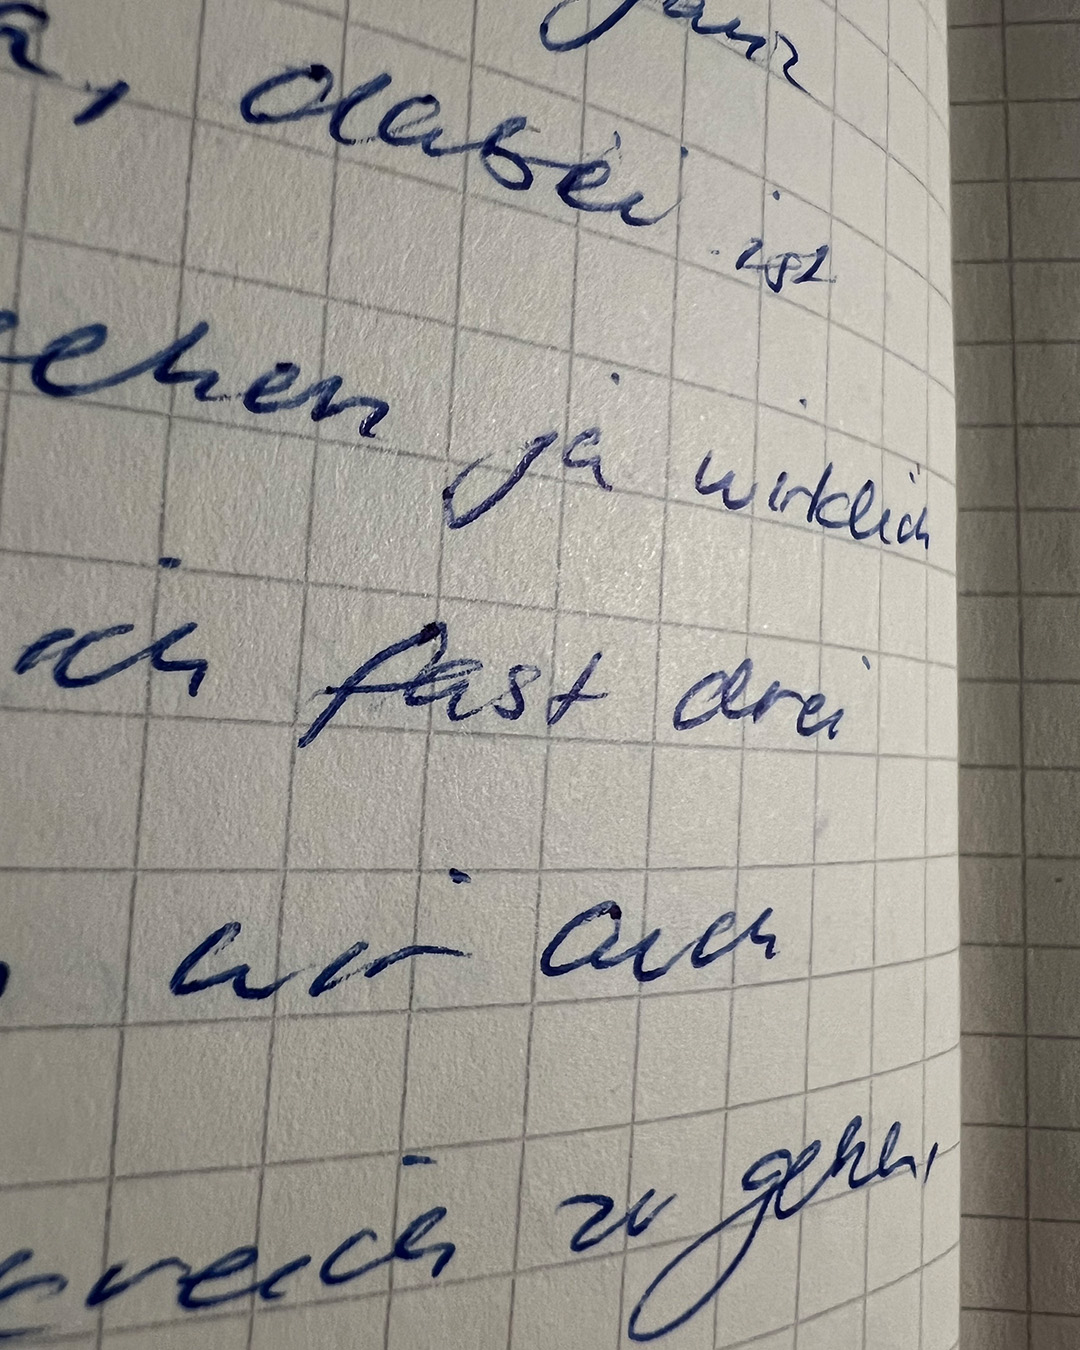 ganz
, dabei ist
ja wirklich
ich fast drei
wir auch
zu gehen,